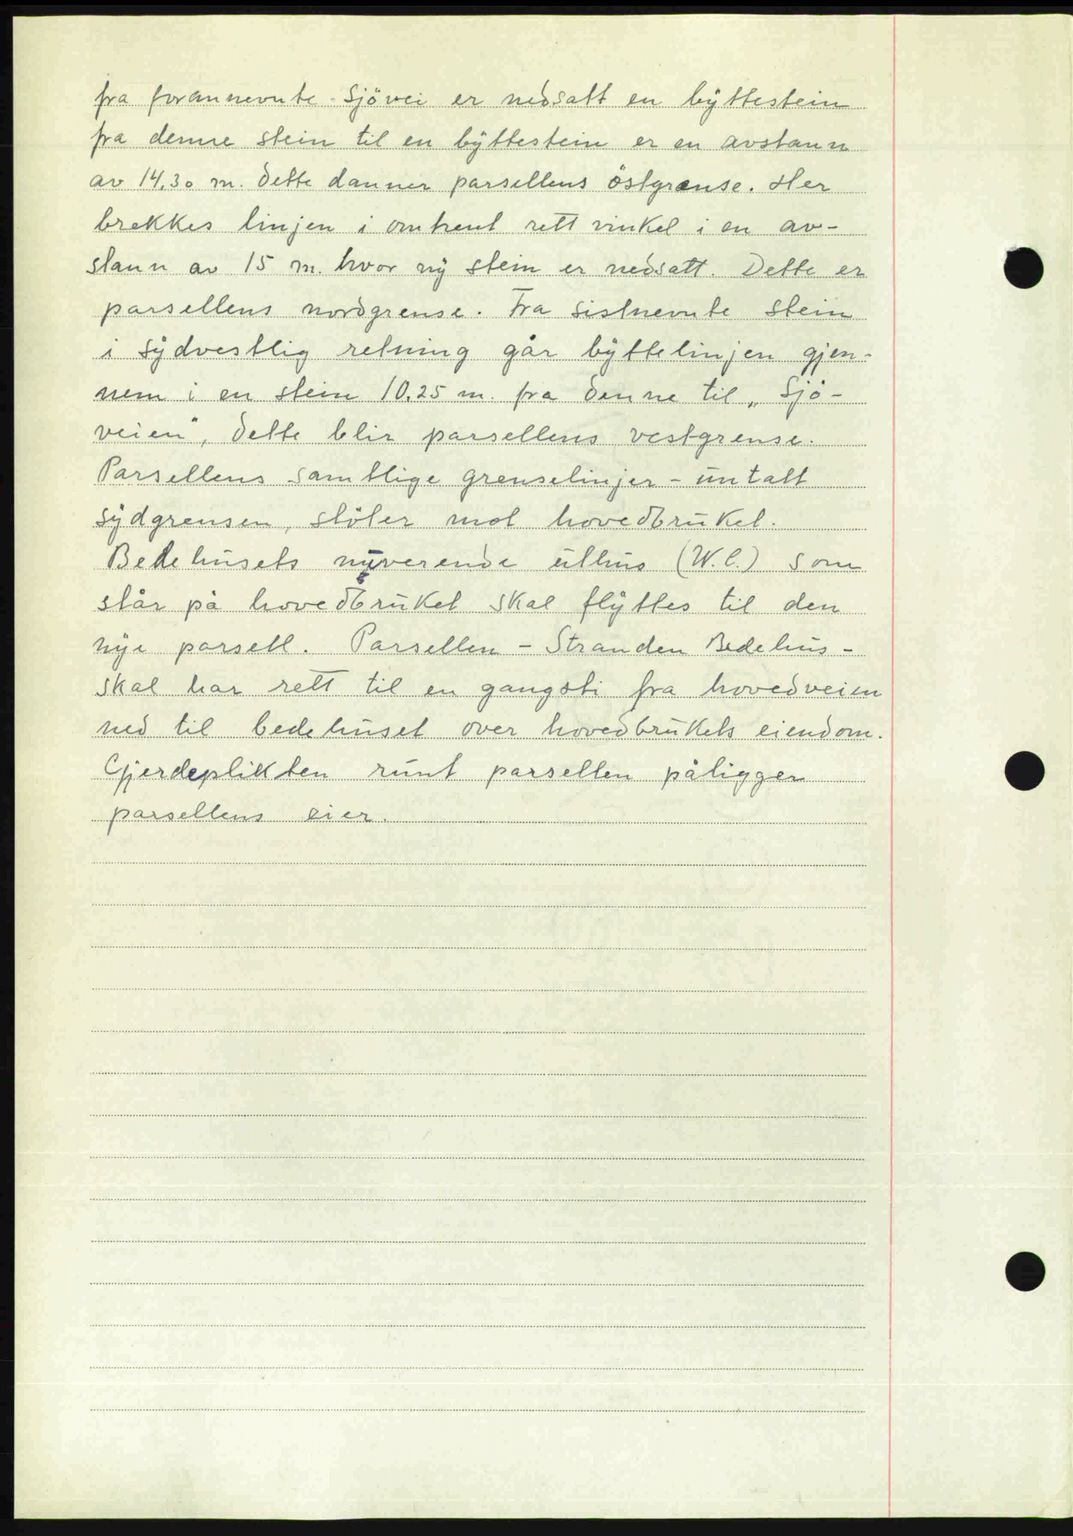 fra forannevnte Sjövei er nedsatt en byttestein
fra denne stein til en byttestein er en avstann
av 14,30 m. Dette danner parsellens östgrense. Her
brekkes linjen i omtrent rett vinkel i en av-
stann av 15 m. hvor ny stein er nedsatt. Dette er
parsellens nordgrense. Fra sistnevnte stein
i sydvestlig retning går byttelinjen gjen-
nem i en stein 10,25 m. fra denne til „Sjö-
veien", dette blir parsellens vestgrense.
Parsellens samtlige grenselinjer - untatt
sydgrensen, stöter mot hovedbruket.
Bedehusets nuverende uthus (W.C.) som
står på hovedbruket skal flyttes til den
nye parsell. Parsellen - Stranden Bedehus -
skal har rett til en gangsti fra hovedveien
ned til bedehuset over hovedbrukets eiendom.
Gjerdeplikten runt parsellen påligger
parsellens eier.